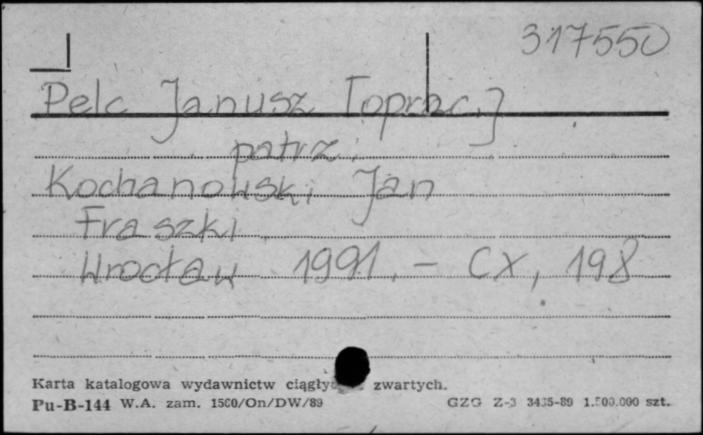 317550
Pelc Janusz [oprac.]
patrz:
Kochanowski Jan
Fraszki
Wrocław 1991. - CX, 198
Karta katalogowa wydawnictw ciągłych zwartych.
Pu-B-144 W.A. zam. 1560/On/DW/89 GZG Z-3 3435-89 1.500.000 szt.